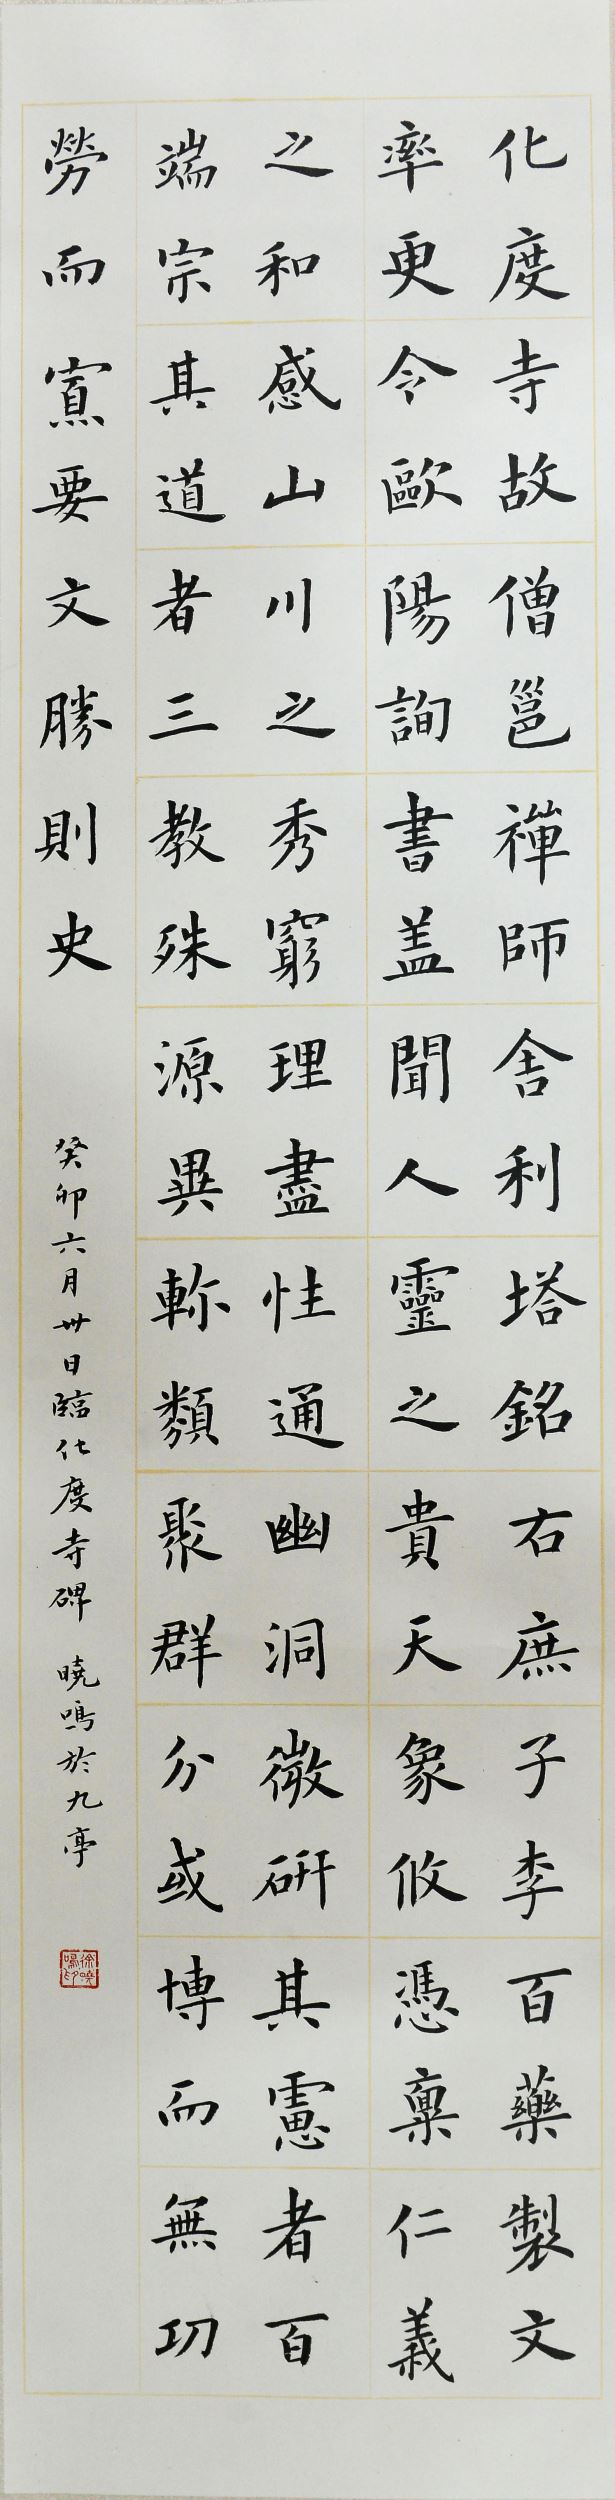 化度寺故僧邕禪師舎利塔銘右庶子李百藥製文
率更令歐陽詢書盖聞人靈之貴天象攸憑禀仁義
之和感山川之秀窮理盡性通幽洞微硏其慮者百
端宗其道者三教殊源異軫類聚群分或博而無功
勞而寡要文勝則史
癸卯六月卅日臨化度寺碑 曉鳴於九亭
徐曉鳴印